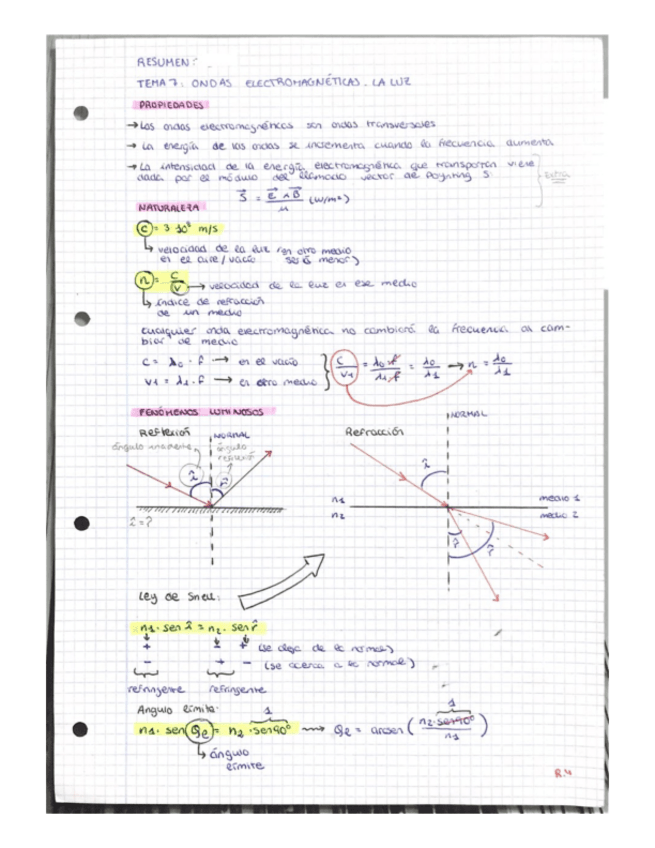 RESUMEN:
TEMA 7: ONDAS ELECTROMAGNÉTICAS. LA LUZ
PROPIEDADES
→ Las ondas electromagnéticas son ondas transversales
→ La energía de las ondas se incrementa cuando la frecuencia aumenta
→ La intensidad de la energía electromagnética que transportan viene
dada por el módulo del llamado vector de Poynting S:
S⃗ = E⃗ ∧ B⃗ / μ (W/m²)
NATURALEZA
c = 3·10⁸ m/s
↳ velocidad de la luz (en otro medio
en el aire/vacío será menor)
n = c/v → velocidad de la luz en ese medio
↳ índice de refracción
de un medio
cualquier onda electromagnética no cambiará la frecuencia al cam-
biar de medio
c = λ₀ · f → en el vacío
v₁ = λ₁ · f → en otro medio
c/v₁ = λ₀·f/λ₁·f = λ₀/λ₁ → n = λ₀/λ₁
FENÓMENOS LUMINOSOS
Reflexión
NORMAL
ángulo incidente
ángulo
reflexión
î
r̂
î = r̂
Refracción
NORMAL
î
n₁
medio 1
n₂
medio 2
r̂
r̂
Ley de Snell:
n₁ · sen î = n₂ · sen r̂
+ - + (se aleja de la normal)
- + - (se acerca a la normal)
refringente refringente
Ángulo límite:
1
1
n₁ · sen Qe = n₂ · sen90° → Qe = arcsen (n₂·sen90°/n₁)
↳ ángulo
límite
R.4